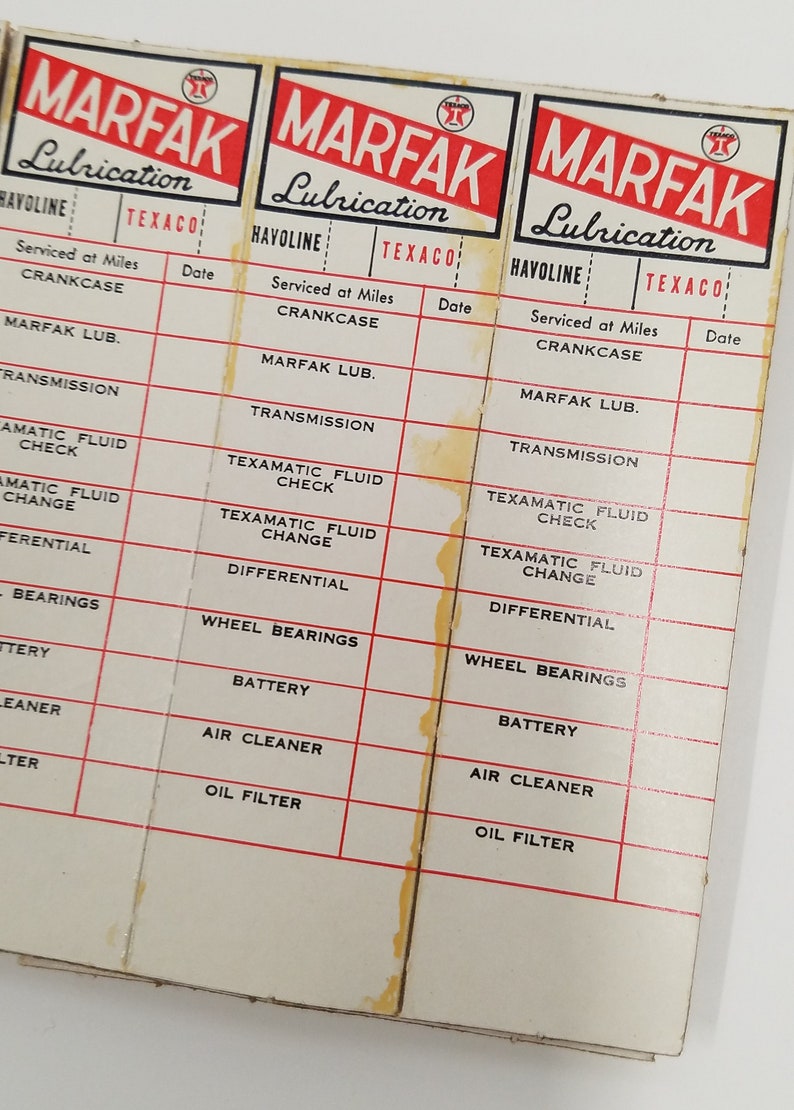 TEXACO
T
MARFAK
Lubrication
HAVOLINE TEXACO
Serviced at Miles Date
CRANKCASE
MARFAK LUB.
TRANSMISSION
AMATIC FLUID
CHECK
AMATIC FLUID
CHANGE
FERENTIAL
BEARINGS
TTERY
LEANER
LTER
TEXACO
T
MARFAK
Lubrication
HAVOLINE TEXACO
Serviced at Miles Date
CRANKCASE
MARFAK LUB.
TRANSMISSION
TEXAMATIC FLUID
CHECK
TEXAMATIC FLUID
CHANGE
DIFFERENTIAL
WHEEL BEARINGS
BATTERY
AIR CLEANER
OIL FILTER
TEXACO
T
MARFAK
Lubrication
HAVOLINE TEXACO
Serviced at Miles Date
CRANKCASE
MARFAK LUB.
TRANSMISSION
TEXAMATIC FLUID
CHECK
TEXAMATIC FLUID
CHANGE
DIFFERENTIAL
WHEEL BEARINGS
BATTERY
AIR CLEANER
OIL FILTER